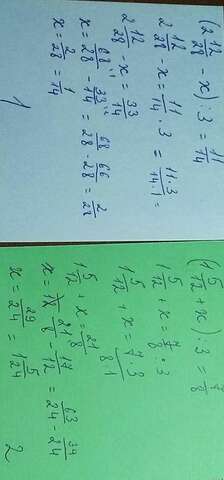 (2 12/28 - x) : 3 = 11/14
2 12/28 - x = 11/14 · 3 = 11·3/14·1 =
2 12/28 - x = 33/14
x = 68/28 - 33/14 = 68/28 - 66/28 = 2/28
x = 2/28 = 1/14
1
(1 5/12 + x) : 3 = 7/8
1 5/12 + x = 7/8 · 3
1 5/12 + x = 7·3/8·1
1 5/12 + x = 21/8
x = 21/8 - 17/12 = 63/24 - 34/24
x = 29/24 = 1 5/24
2